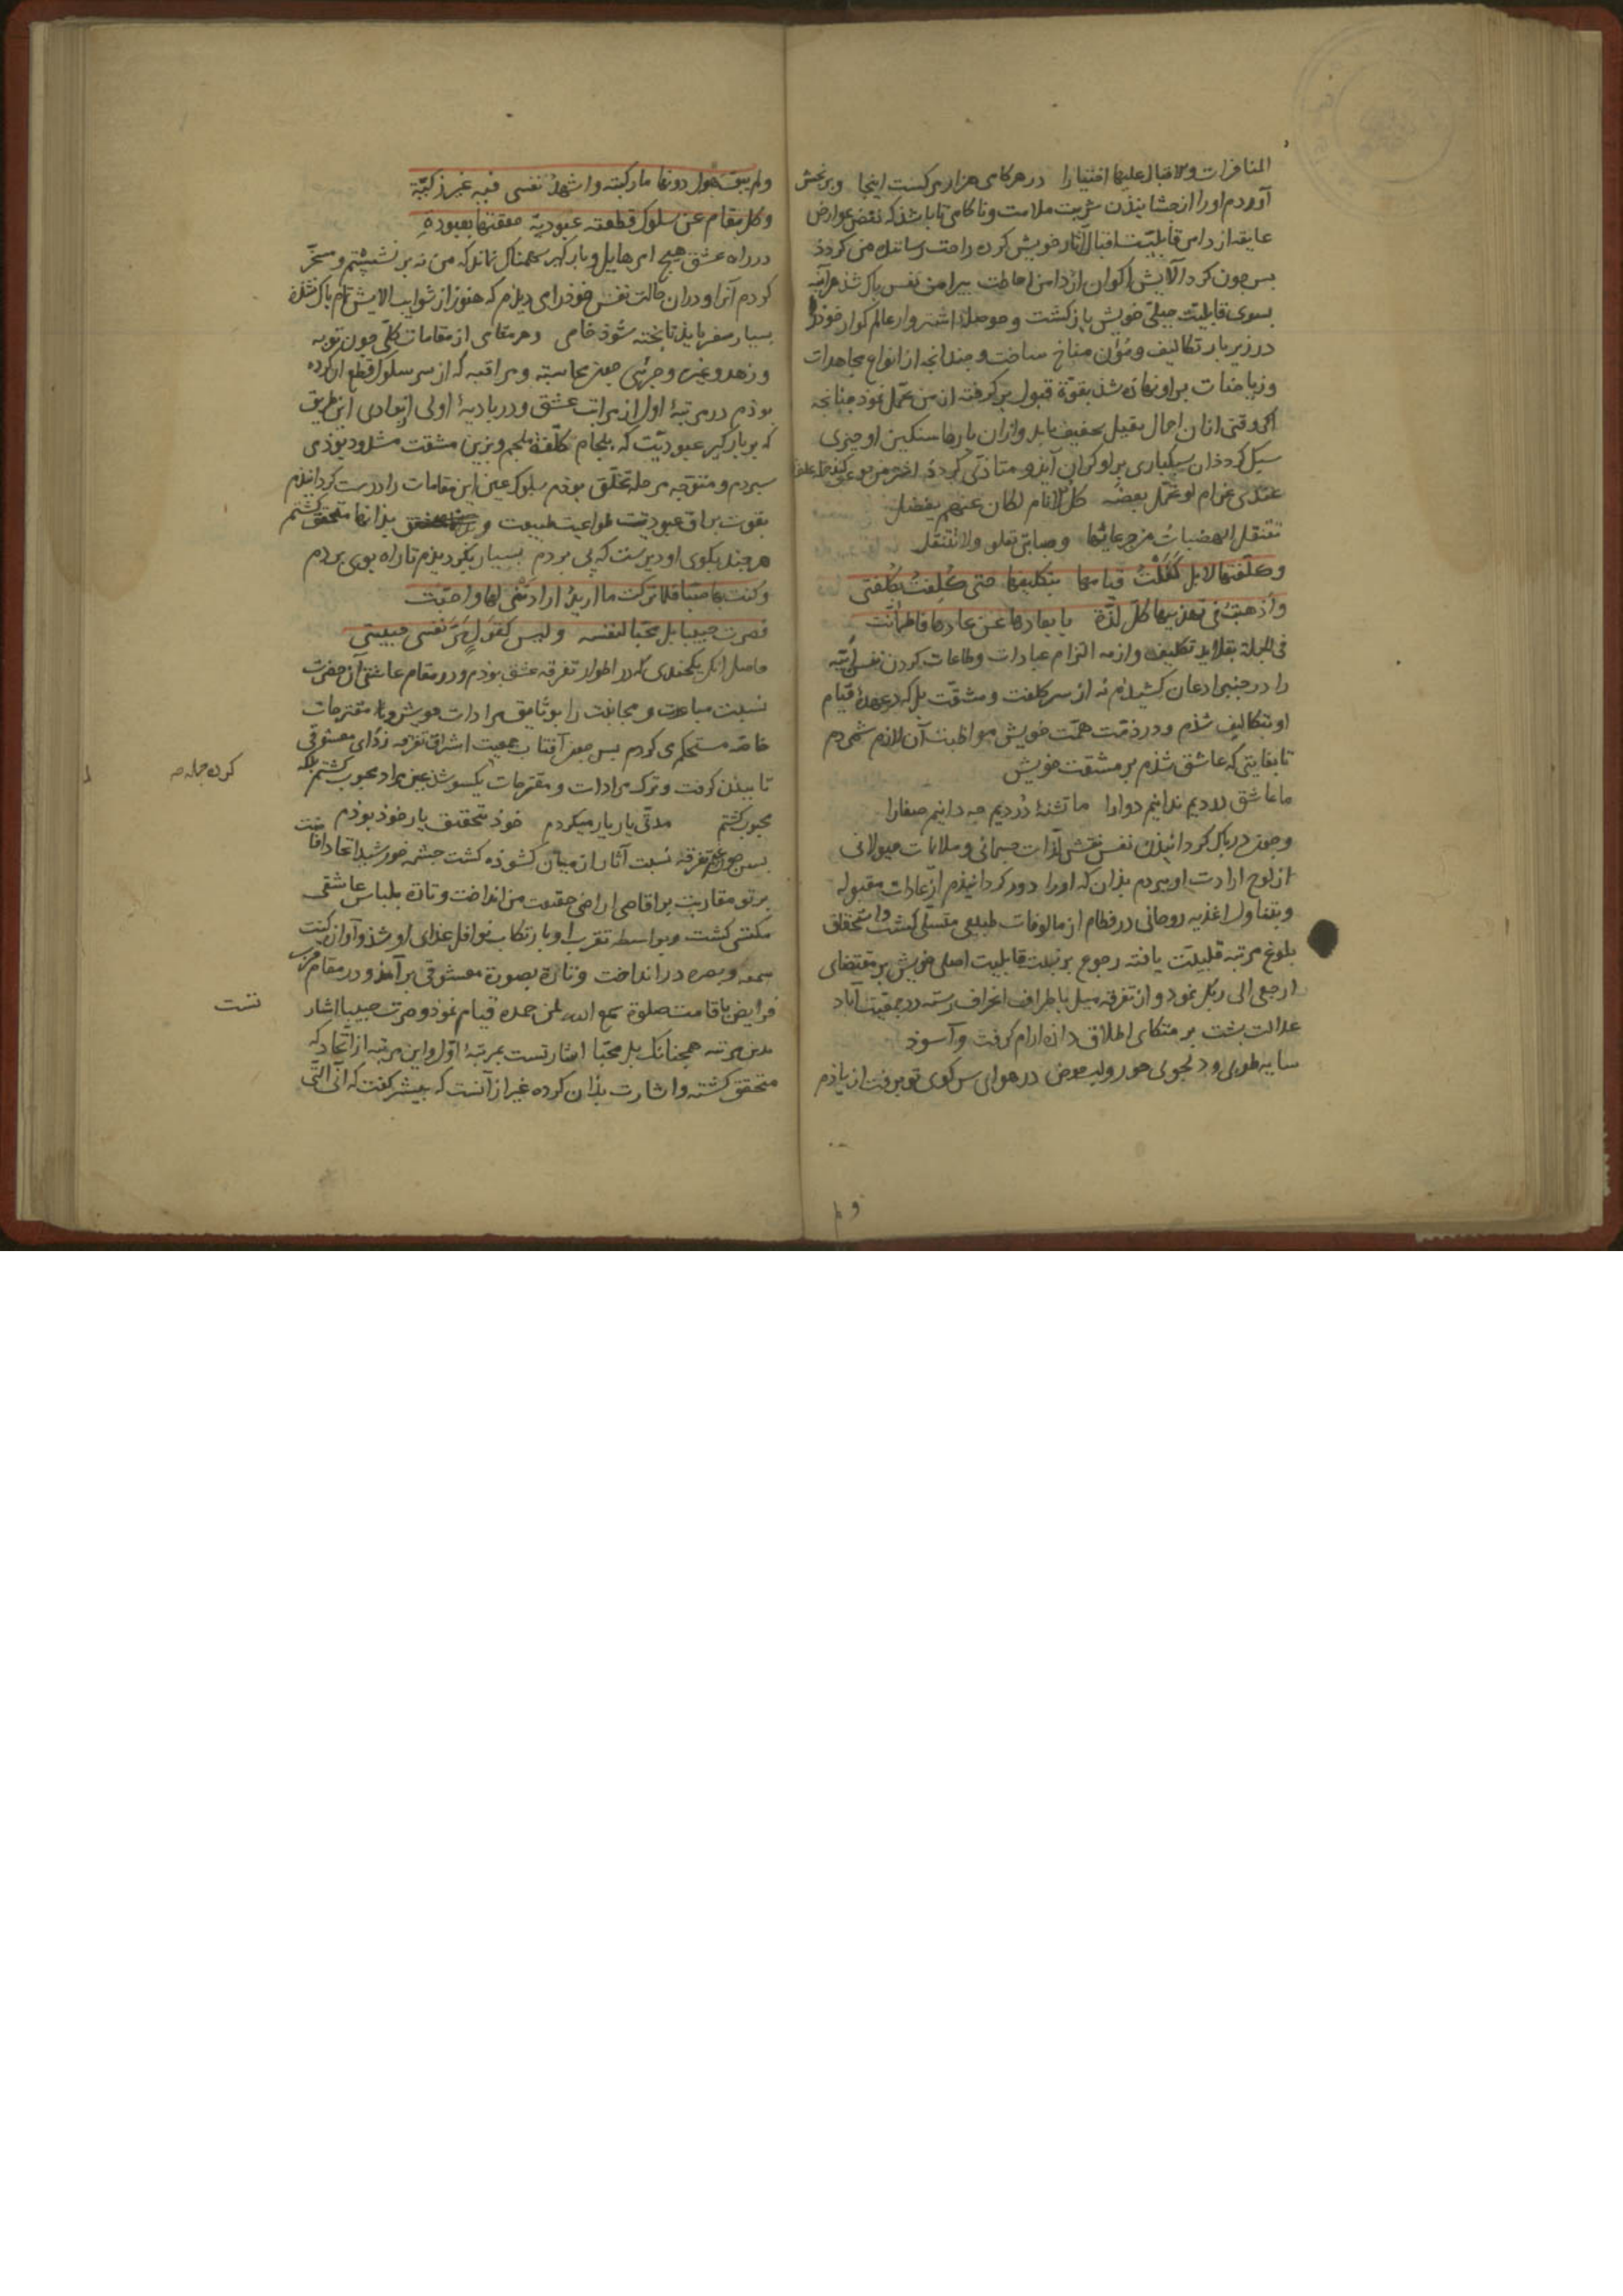 المنافرات ولاقبال علیها اختیارا در هر کامی هزار هر کست اینجا وبرنحش
آوردم اورا از چشانیذن شربت ملامت وناکامی تا باشذ که نقض عوارض
عایقه از دامن قابلیت اقبال آثار خویش کرده راحت رسانند من کردد
بس جون کرد آلایش اکوان از دامن احاطت بیرامن نفس پاک شذ هراینه
بسوی قابلیت جبلی خویش باز کشت وحوصلهٔ اشتروار عالم کوار خوذرا
در زیر بار تکالیف ومؤن مناخ ساخت وجندانجه از انواع مجاهدات
وریاضات براو نهاده شذ بقوة قبول بر کرفته از من تحمل نموذ جنانجه
اکر وقتی از ان احمال ثقیل تخفیف یابد واز ان بارها سنکین او جیزی
سبک کردذ ان سبکباری براو کران آیذ ومتاذی کردذ
عندی غرام لو تحمل بعضه کل الانام لکان عنهم یفضل
تتنقل الهضبات من جرعاتها وصبابتی تعلو ولا تتنقل
وکلفتها لا بل کفلت قیامها بتکلیفها حتی کلفت بکلفتی
واذهبت فی تهذیبها کل لذة بابعادها عن عادها فاطمأنت
فی الجملة بقلاید تکلیف وازمه التزام عبادات وطاعات کردن نفس ابیه
را در جنبر اذعان کشیدم نه از سر کلفت ومشقت بل که در عهدهٔ قیام
او بتکالیف شذم ودر ذمت همت خویش مواظبت آن لازم شمردم
تا بغایتی که عاشق شذم بر مشقت خویش
ما عاشق دردیم ندانیم دوا را ما تشنهٔ دردیم جه دانیم صفارا
وجون در پاک کردانیذن نفس نقش لذات جسمانی وملایمات هیولانی
از لوح ارادت او ستردم بذان که اورا دور کردانیذم از عادات مقبوله
وبتناول اغذیه روحانی در فطام از مالوفات طبیعی متسلی کشت واستحقاق
بلوغ مرتبه قلبیت یافته رجوع بر نهایت قابلیت اصلی خویش بر مقتضای
ارجعی الی ربک نموذ واز تفرقه میل باطراف انحراف رسته در جمعیت آباد
عدالت بشت بر متکای اطلاق داذه ارام کرفت وآسوذ
سایه طوبی ودلجویی حور ولب حوض در هوای سر کوی تو برفت از یاذم
ولم
ولم یبق هول دونها ما رکبته واشهد نفسی فیه غیر زکیة
وکل مقام عن سلوک قطعته عبودیة حققتها بعبودة
در راه عشق هیج امر هایل وبار کیر سهمناک نماند که من نه بر نشستم ومسخر
کردم آنرا ودران حالت نفس خوذرا می دیذم که هنوز از شوایب الایش تمام پاک نشذه
بسیار سفر بایذ تا بخته شوذ خامی وهر مقامی از مقامات کلی جون توبه
وزهد وغیره وجزئی جون محاسبه ومراقبه که از سر سلوک قطع ان کرده
بوذم در مرتبهٔ اول از مراتب عشق ودر بادیهٔ اولی از بوادی این طریق
که بر بارکیر عبودیت که بلجام کلفه ملجم وبزین مشقت مشدود بوذی
سپردم ومتوجه مرحله تخلق بوذم سلوک عین این مقامات را درست کردانیذم
بقوت براق عبودیت طواعیت طبیعت و بذانها متحقق کشتم
هر جند بکوی او دیرست که پی بردم بسیار بکردیذم تا راه بوی بردم
وکنت بها صبا فلما ترکت ما ارید ارادتنی لها واحبت
فصرت حبیبا بل محبا لنفسه ولیس کقول مر نفسی حبیبتی
حاصل انکه یکجندی در اطوار تفرقه عشق بوذم ودر مقام عاشقی آن حضرت
نسبت مباعدت ومجانبت را بوثایق مرادات خویش وبار مقترحات
خاصه مستحکم می کردم بس جون آفتاب جمعیت اشراق تفرقه زدای معشوقی
تابیذن کرفت وترک مرادات ومقترحات یکسو شذ عین مراد محبوب کشتم بلکه
محبوب کشتم مدتی یار یار میکردم خوذ بتحقیق یار خوذ بوذم
بس جون غیم تفرقه نسبت آثار از میان کشوذه کشت جشمه خورشید اتحاد افاضت
پرتو مقاربت بر اقاصی اراضی حقیقت من انداخت وتارة بلباس عاشقی
مکتسی کشت وبواسطه تقرب او بارتکاب نوافل عذای او شذ وآوازه کنت
سمعه وبصره در انداخت وتارة بصورة معشوقی برآمذ ودر مقام قرب
فرایض باقامت صلوة سمع الله لمن حمده قیام نموذ وصرت حبیبا اشار
بذین مرتبه همجنانک بل محبا اشارتست بمرتبهٔ اول واین مرتبه از اتحاد که
متحقق کشته واشارت بذان کرده غیر از آنست که بیشتر کفت که انی التی
کرده جمله
تست